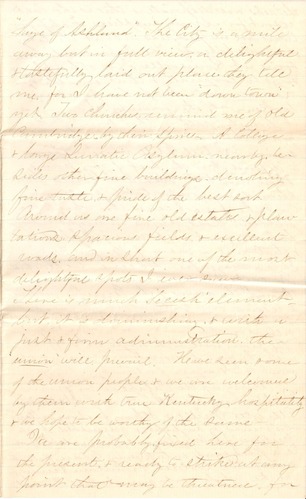 "Sage of Ashland". The City is a mile
away but in full view, a delightful
& tastefully laid out place they tell
me for I have not been "down town"
yet. Two Churches remind me of Old
Cambridge by their Spires. A College
& large Lunatic Asylum nearby be-
sides other fine buildings, denoting
fine taste & pride of the best sort
around us are fine old estates & plan-
tations spacious fields & excellent
roads, and in short one of the most
delightful spots I ever seen
There is much Secesh element,
but it is diminishing & with a
just & firm administration, the
union will prevail. Have seen some
of the union people & we are welcomed
by them with true Kentucky hospitality
& we hope to be worthy of the same
We are probably fixed here for
the present, & ready to strike at any
point that may be threatened, &